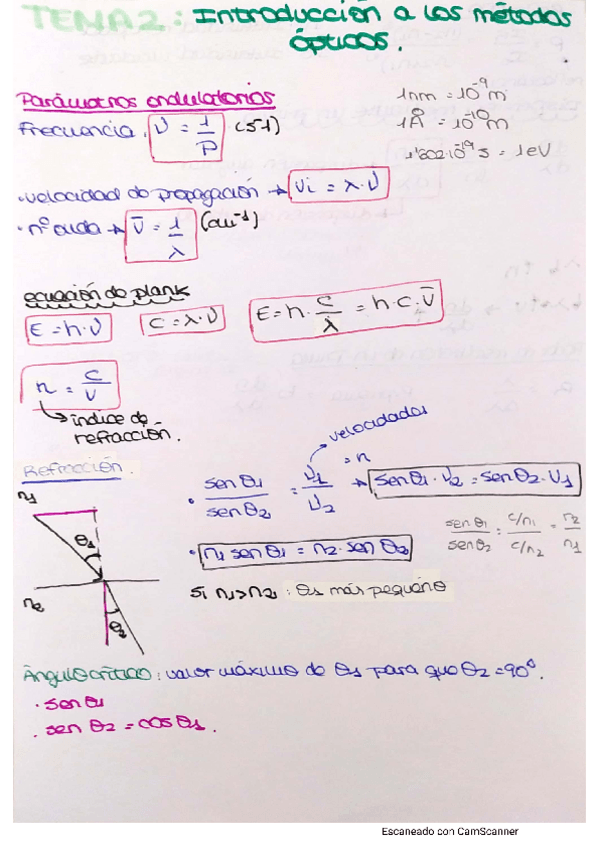 TEMA 2: Introducción a los métodos
ópticos.
Parámetros ondulatorios
Frecuencia. ν = 1/P (s-1)
1nm = 10^-9 m
1Å = 10^-10 m
1'602·10^-19 J = 1eV
·velocidad de propagación → Vi = λ·ν
·nº onda → ν̅ = 1/λ (cm^-1)
ecuación de plank
E = h·ν
C = λ·ν
E = h·C/λ = h·C·ν̅
n = C/V
→ índice de
refracción.
Refracción.
velocidades
· sen θ1/sen θ2 = V1/V2 = n → sen θ1·V2 = sen θ2·V1
n1
θ1
n2
θ2
sen θ1/sen θ2 = C/n1/C/n2 = n2/n1
· n1 sen θ1 = n2·sen θ2
Si n1>n2 : θ1 más pequeño
Ángulo crítico : valor máximo de θ1 para que θ2 = 90º.
· sen θ1
· sen θ2 = cos θ1.
Escaneado con CamScanner